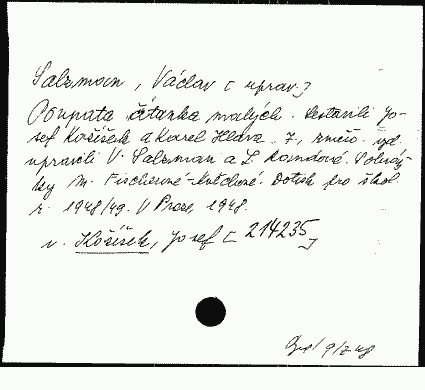 Salzman, Václav [uprav.]
Poupata čítanka malých. Sestavili Jo-
sef Kožíšek a Karel Hlava. 7., změň. vyd.
upravili V. Salzman a L. Landová. Obráz-
ky M. Fischerové-Kvěchové. Dotisk pro škol.
r. 1948/49. V Praze, 1948.
v. Kožíšek, Josef [214235]
9/2 48